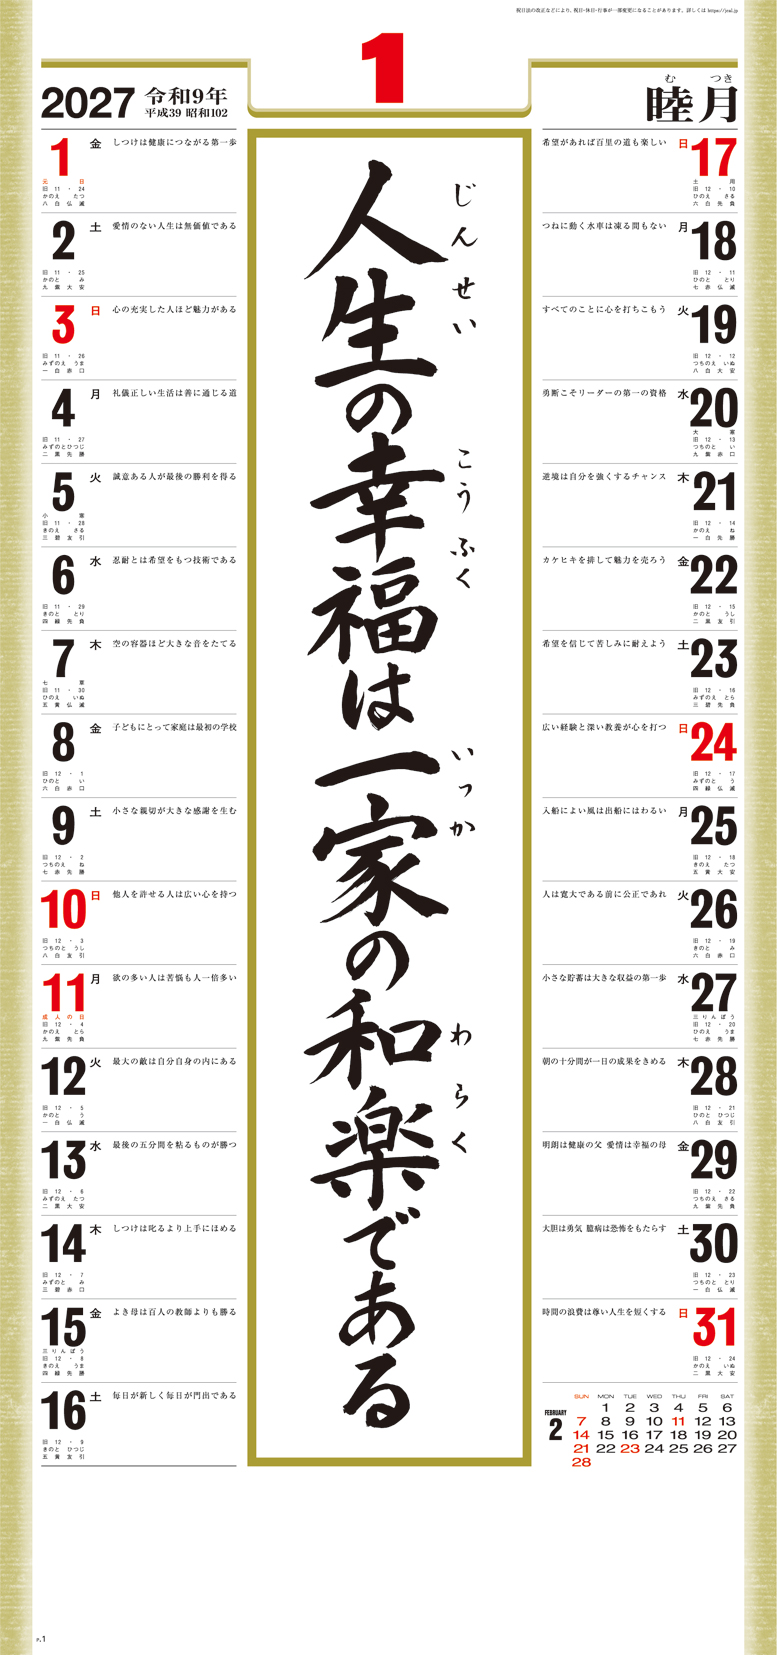 祝日法の改正などにより、祝日・休日・行事が一部変更になることがあります。詳しくは https://jcal.jp
1
2027
令和9年
平成39 昭和102
むつき
睦月
じんせい こうふく いっか わらく
人生の幸福は一家の和楽である
1 金 しつけは健康につながる第一歩
元日
旧 11・24
かのえ たつ
八白仏滅
2 土 愛情のない人生は無価値である
旧 11・25
かのと み
九紫大安
3 日 心の充実した人ほど魅力がある
旧 11・26
みずのえ うま
一白赤口
4 月 礼儀正しい生活は善に通じる道
旧 11・27
みずのとひつじ
二黒先勝
5 火 誠意ある人が最後の勝利を得る
小寒
旧 11・28
きのえ さる
三碧友引
6 水 忍耐とは希望をもつ技術である
旧 11・29
きのと とり
四緑先負
7 木 空の容器ほど大きな音をたてる
七草
旧 11・30
ひのえ いぬ
五黄仏滅
8 金 子どもにとって家庭は最初の学校
旧 12・1
ひのと い
六白赤口
9 土 小さな親切が大きな感謝を生む
旧 12・2
つちのえ ね
七赤先勝
10 日 他人を許せる人は広い心を持つ
旧 12・3
つちのと うし
八白友引
11 月 欲の多い人は苦悩も人一倍多い
成人の日
旧 12・4
かのえ とら
九紫先負
12 火 最大の敵は自分自身の内にある
旧 12・5
かのと う
一白仏滅
13 水 最後の五分間を粘るものが勝つ
旧 12・6
みずのえ たつ
二黒大安
14 木 しつけは叱るより上手にほめる
旧 12・7
みずのと み
三碧赤口
15 金 よき母は百人の教師よりも勝る
三りんぼう
旧 12・8
きのえ うま
四緑先勝
16 土 毎日が新しく毎日が門出である
旧 12・9
きのと ひつじ
五黄友引
17 日 希望があれば百里の道も楽しい
土用
旧 12・10
ひのえ さる
六白先負
18 月 つねに動く水車は凍る間もない
旧 12・11
ひのと とり
七赤仏滅
19 火 すべてのことに心を打ちこもう
旧 12・12
つちのえ いぬ
八白大安
20 水 勇断こそリーダーの第一の資格
大寒
旧 12・13
つちのと い
九紫赤口
21 木 逆境は自分を強くするチャンス
旧 12・14
かのえ ね
一白先勝
22 金 カケヒキを排して魅力を売ろう
旧 12・15
かのと うし
二黒友引
23 土 希望を信じて苦しみに耐えよう
旧 12・16
みずのえ とら
三碧先負
24 日 広い経験と深い教養が心を打つ
旧 12・17
みずのと う
四緑仏滅
25 月 入船によい風は出船にはわるい
旧 12・18
きのえ たつ
五黄大安
26 火 人は寛大である前に公正であれ
旧 12・19
きのと み
六白赤口
27 水 小さな貯蓄は大きな収益の第一歩
三りんぼう
旧 12・20
ひのえ うま
七赤先勝
28 木 朝の十分間が一日の成果をきめる
旧 12・21
ひのと ひつじ
八白友引
29 金 明朗は健康の父 愛情は幸福の母
旧 12・22
つちのえ さる
九紫先負
30 土 大胆は勇気 臆病は恐怖をもたらす
旧 12・23
つちのと とり
一白仏滅
31 日 時間の浪費は尊い人生を短くする
旧 12・24
かのえ いぬ
二黒大安
FEBRUARY
2
SUN MON TUE WED THU FRI SAT
1 2 3 4 5 6
7 8 9 10 11 12 13
14 15 16 17 18 19 20
21 22 23 24 25 26 27
28
P.1